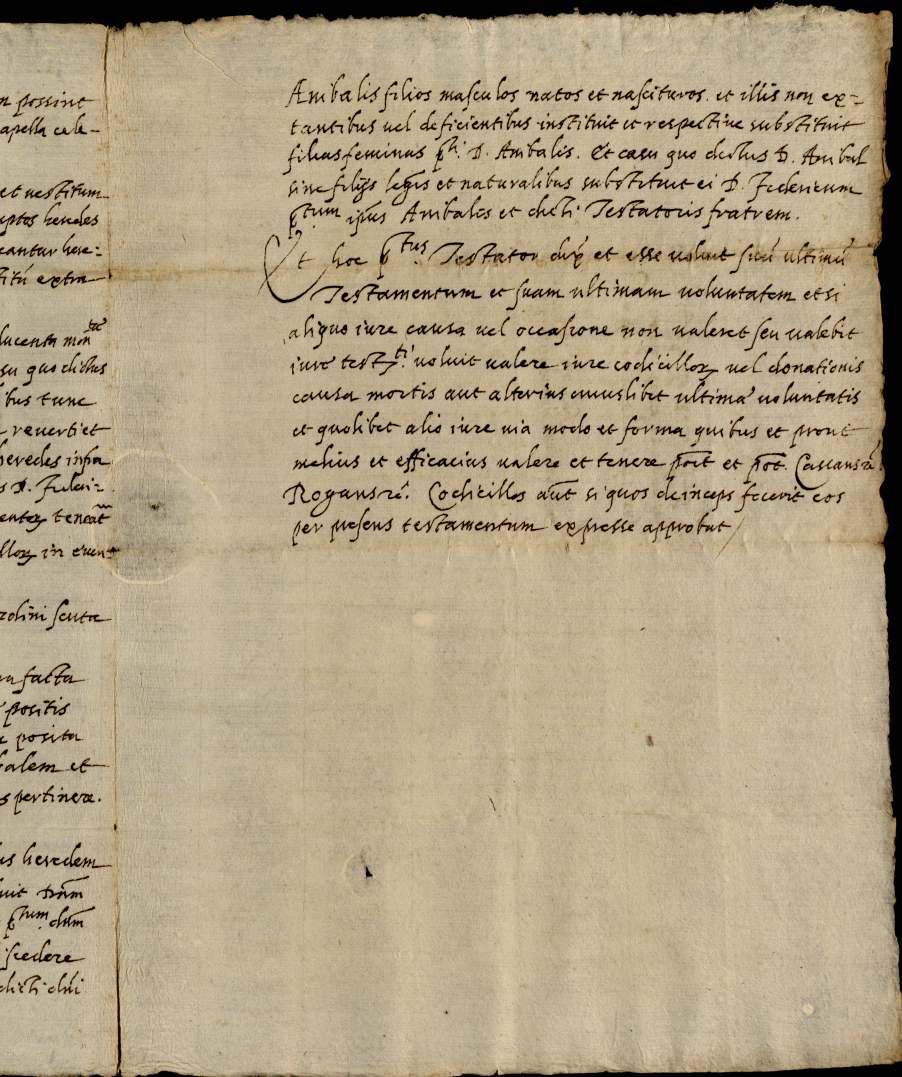 n possint
apella cele-
et uestitum
uptos heredes
eantur here:
titũ extra
ducenta mon
su quo dictus
ibus tunc
reuerti et
heredes infra
s D. Federi:
teneat
in euen:
rolini scuta
ra facta
positis
e posita
balem et
s pertinere.
us heredem
uit Dñm
p.tum dũm
scedere
dicti dñi
Anibalis filios masculos natos et nascituros. et illis non ex=
tantibus uel deficientibus instituit et respectiue substituit
filias feminas p.ti D. Anibalis. Et casu quo dictus D. Anibal
sine filijs legĩs et naturalibus substituit ei D. Federicum
p.tum ip̃ius Anibalis et dicti Testatoris fratrem.
Et hoc p.tus Testator dix̃ et esse uoluit suũ ultimũ
Testamentum et suam ultimam uoluntatem et si
aliquo iure causa uel occasione non ualeret seu ualebit
iure test.ti uoluit ualere iure codicillor̃ uel donationis
causa mortis aut alterius cuiuslibet ultimæ uoluntatis
et quolibet alio iure uia modo et forma quibus et prout
melius et efficacius ualere et tenere poĩt et põt. Cassans rẽ.
Rogans rẽ. Codicillos aũt si quos deinceps fecerit eos
per presens testamentum expresse approbat /